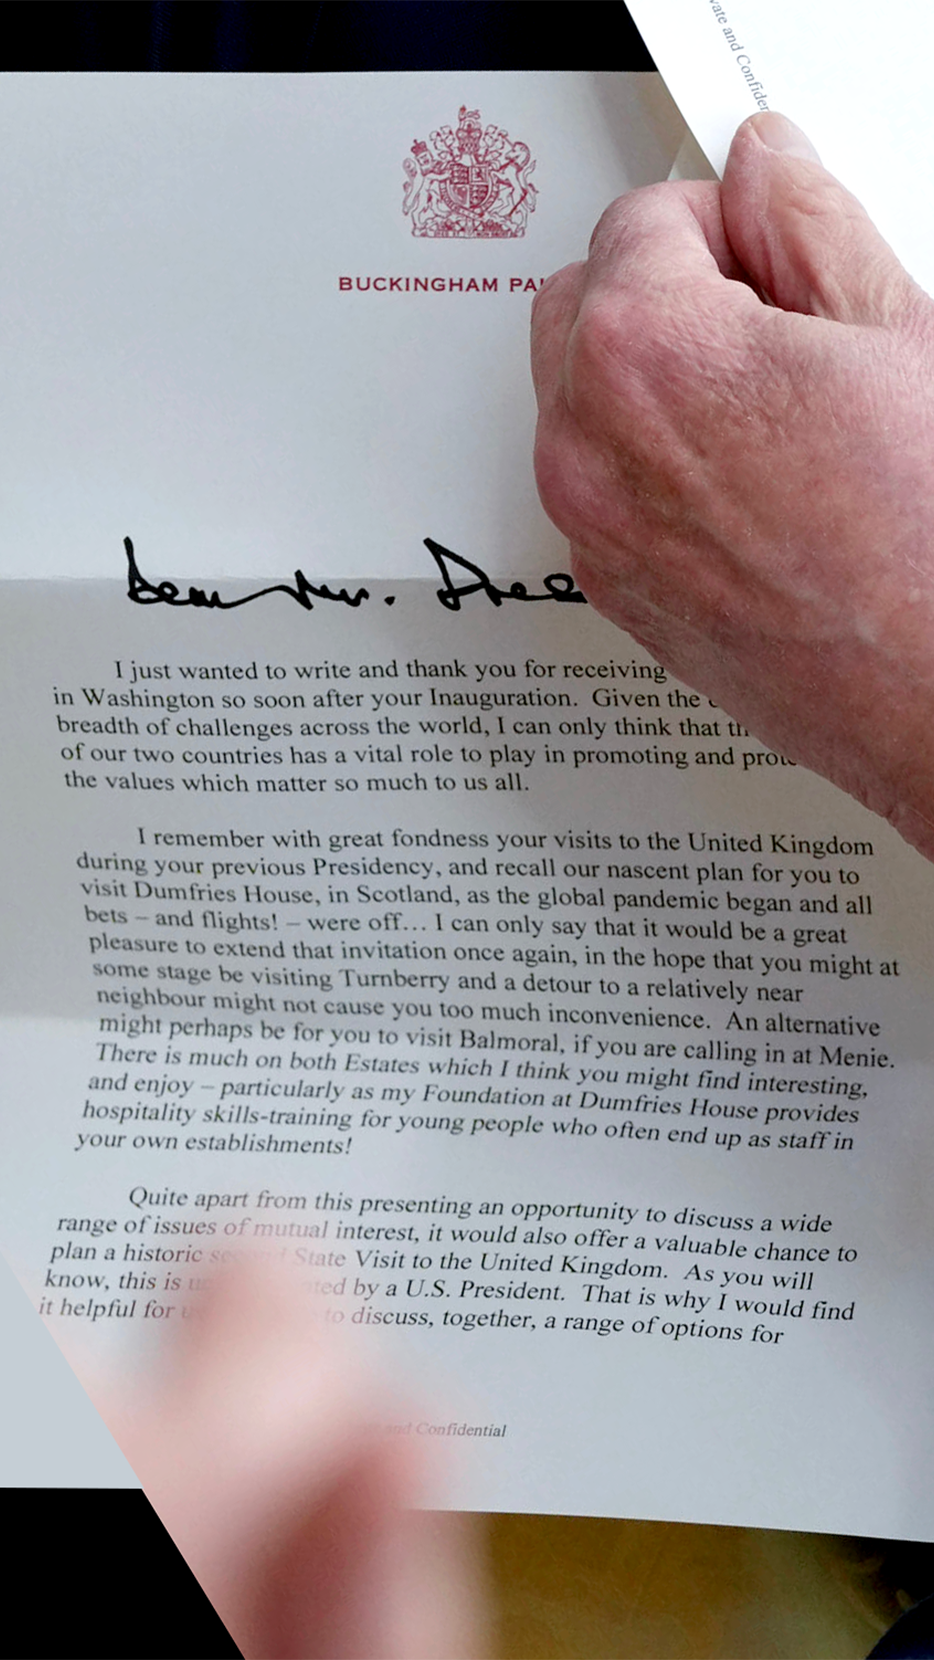 vate and Confiden
BUCKINGHAM PA
Dear Mr.
I just wanted to write and thank you for receiving
in Washington so soon after your Inauguration. Given the
breadth of challenges across the world, I can only think that
of our two countries has a vital role to play in promoting and
the values which matter so much to us all.
I remember with great fondness your visits to the United Kingdom
during your previous Presidency, and recall our nascent plan for you to
visit Dumfries House, in Scotland, as the global pandemic began and all
bets – and flights! – were off… I can only say that it would be a great
pleasure to extend that invitation once again, in the hope that you might at
some stage be visiting Turnberry and a detour to a relatively near
neighbour might not cause you too much inconvenience. An alternative
might perhaps be for you to visit Balmoral, if you are calling in at Menie.
There is much on both Estates which I think you might find interesting,
and enjoy – particularly as my Foundation at Dumfries House provides
hospitality skills-training for young people who often end up as staff in
your own establishments!
Quite apart from this presenting an opportunity to discuss a wide
range of issues of mutual interest, it would also offer a valuable chance to
plan a historic second State Visit to the United Kingdom. As you will
know, this is by a U.S. President. That is why I would find
it helpful for to discuss, together, a range of options for
and Confidential